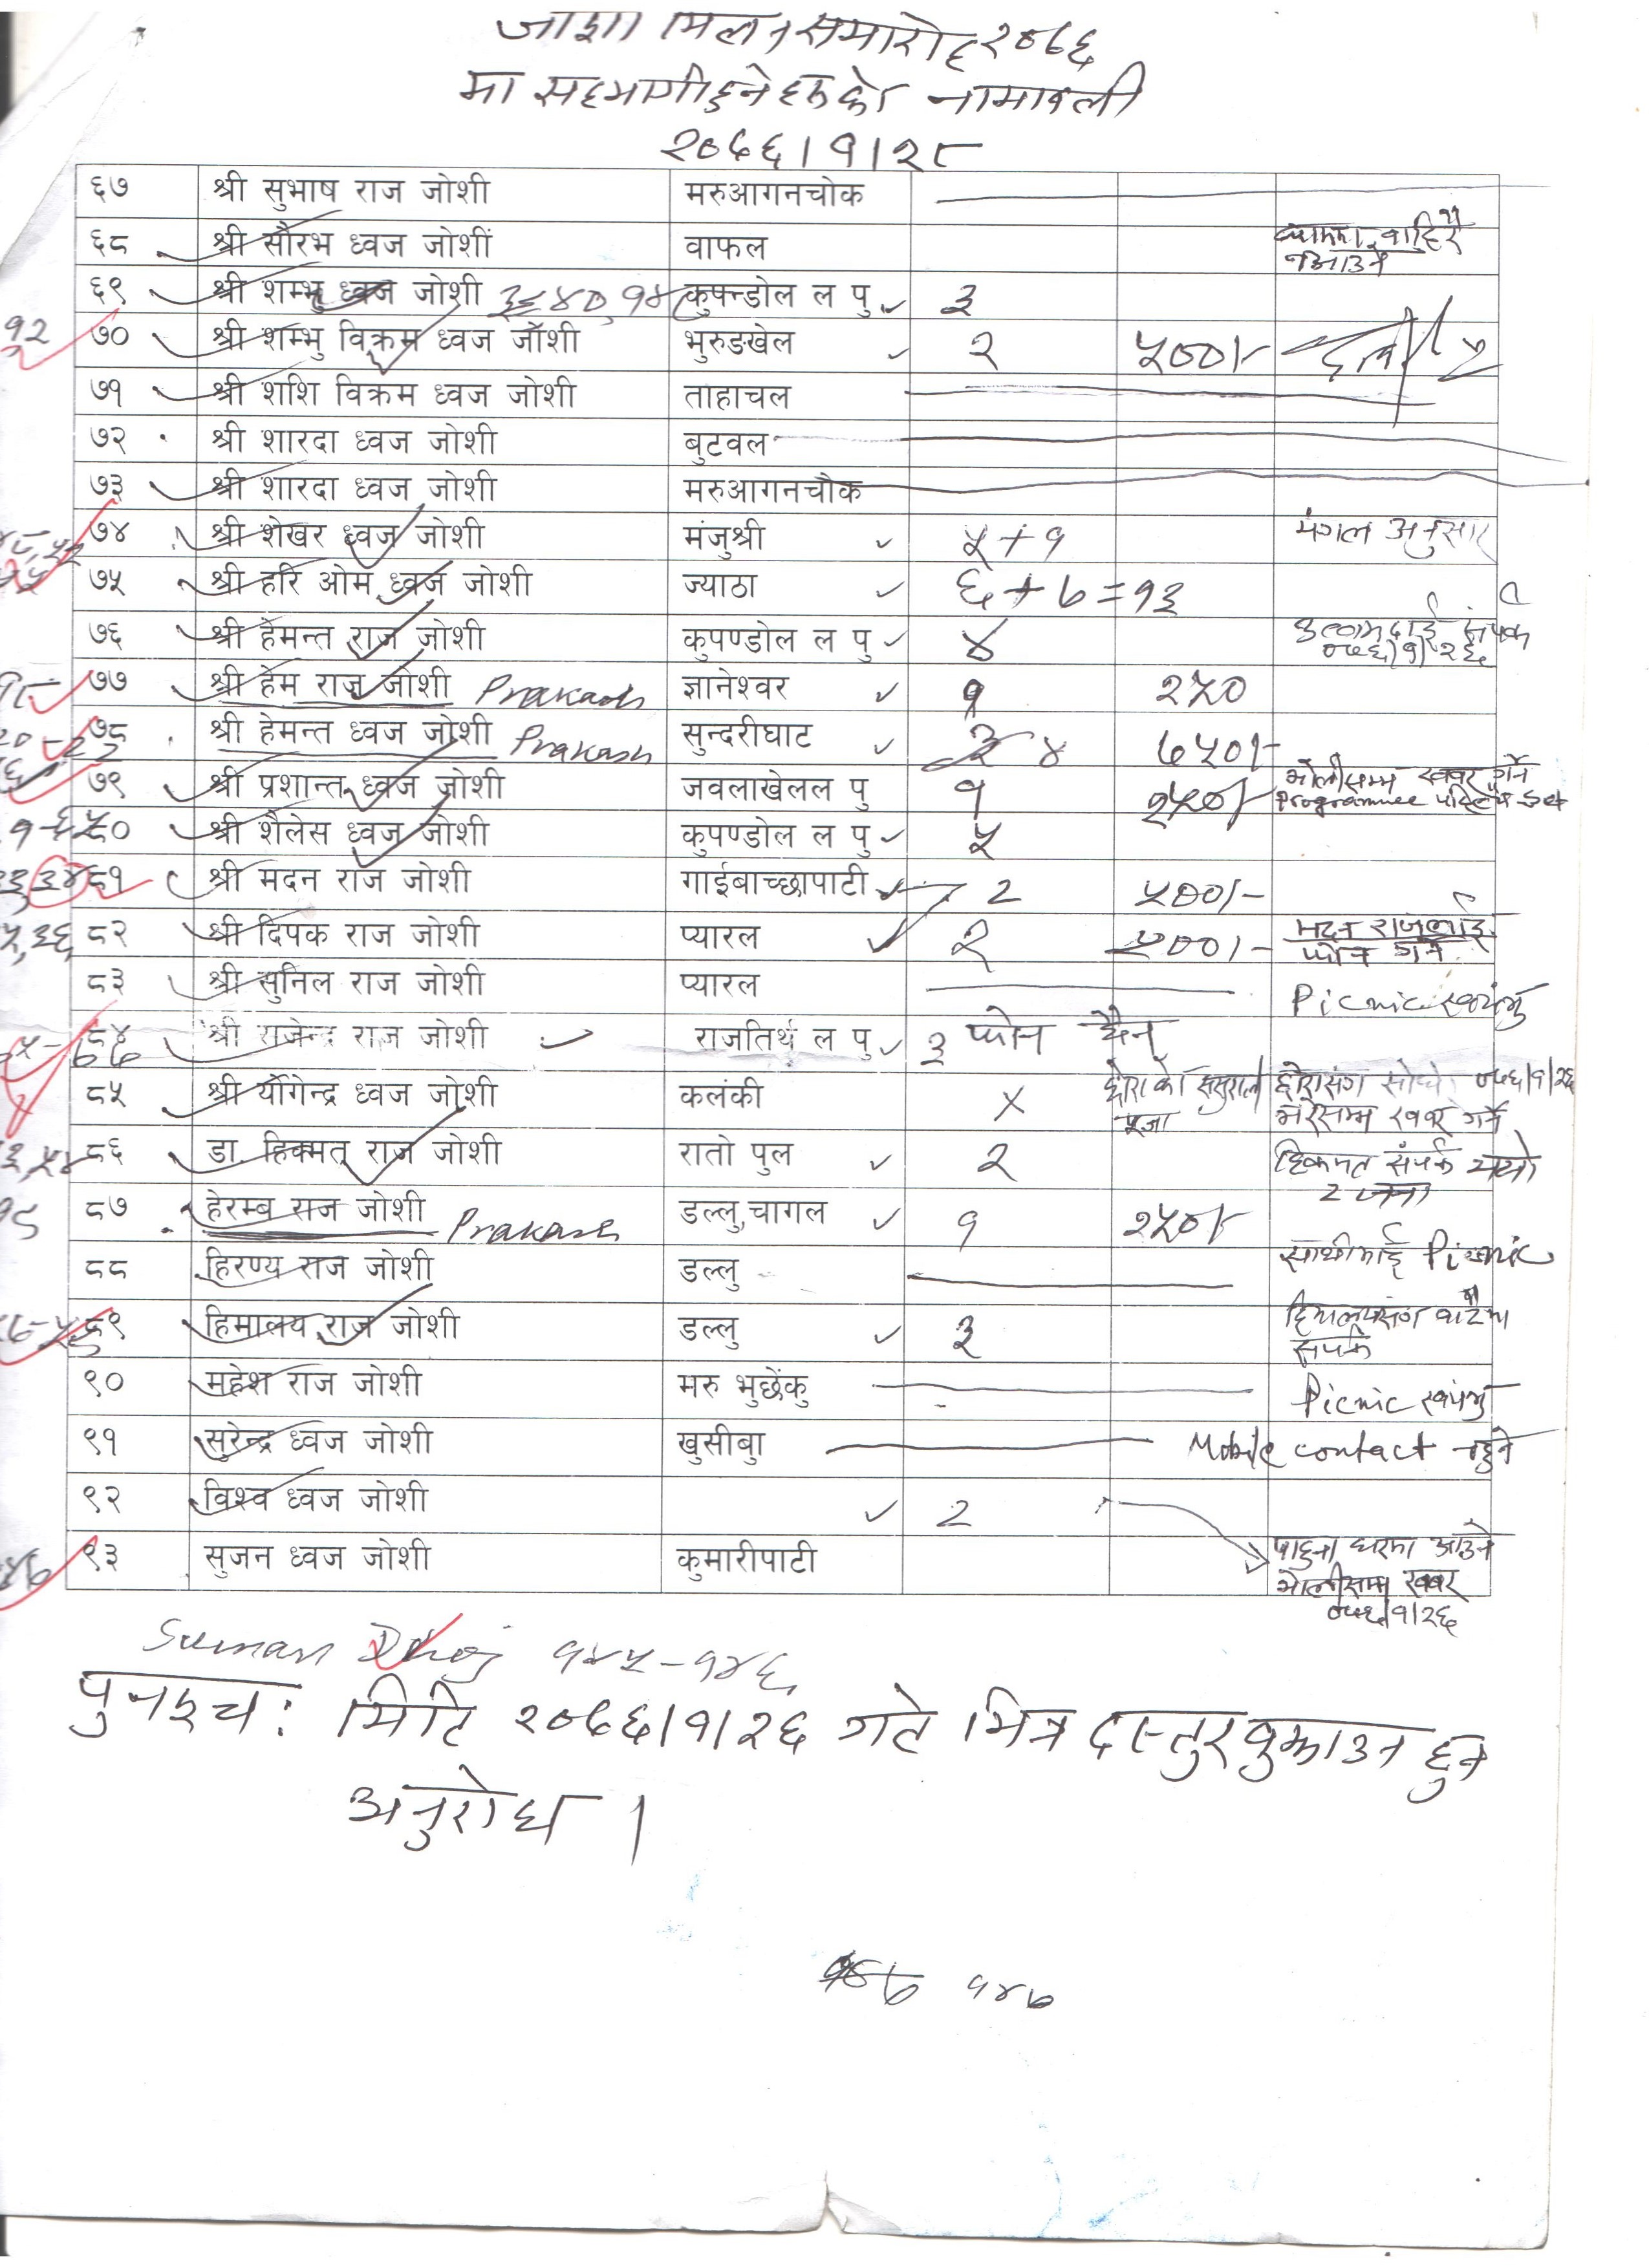 जोशी मिलन समारोह २०६६
मा सहभागी हुनेहरुको नामावली
२०६६।१।२८
६७ श्री सुभाष राज जोशी मरुआगनचोक
६८ श्री सौरभ ध्वज जोशीं वाफल बाहिर
नआउने
६९ श्री शम्भु ध्वज जोशी कुपन्डोल ल पु ३
१२ ७० श्री शम्भु विक्रम ध्वज जोशी भुरुङखेल २ ५००।-
७१ श्री शशि विक्रम ध्वज जोशी ताहाचल
७२ श्री शारदा ध्वज जोशी बुटवल
७३ श्री शारदा ध्वज जोशी मरुआगनचौक
७४ श्री शेखर ध्वज जोशी मंजुश्री ५+१ मंगल अनुसार
७५ श्री हरि ओम ध्वज जोशी ज्याठा ६+७=१३
७६ श्री हेमन्त राज जोशी कुपण्डोल ल पु ४ संपर्क
०६६।१।२६
७७ श्री हेम राज जोशी Prakash ज्ञानेश्वर १ २५०
७८ श्री हेमन्त ध्वज जोशी Prakash सुन्दरीघाट ३ ४ ७५०।-
७९ श्री प्रशान्त ध्वज जोशी जवलाखेलल पु १ २५०।- भोलीसम्म खबर गर्ने
programmee
८० श्री शैलेस ध्वज जोशी कुपण्डोल ल पु ५
८१ श्री मदन राज जोशी गाईबाच्छापाटी 2 ५००।-
८२ श्री दिपक राज जोशी प्यारल २ ५००।- मदन राजलाई
फोन गर्ने
८३ श्री सुनिल राज जोशी प्यारल Picnic स्वयंभु
८४ श्री राजेन्द्र राज जोशी राजतिर्थ ल पु ३ फोन छैन
८५ श्री योंगेन्द्र ध्वज जोशी कलंकी X छोराको ससुराल छोरासंग सोध्ने ०६६।१।२६
पूजा भरेसम्म खबर गर्ने
८६ डा. हिक्मत् राज जोशी रातो पुल २ हिकमत संपर्क भयो
2 जना
८७ हेरम्ब राज जोशी Prakash डल्लु,चागल १ २५०।-
८८ हिरण्य राज जोशी डल्लु साथीलाई Picnic
८९ हिमालय राज जोशी डल्लु ३ हिमालयसंग
संपर्क
९० महेश राज जोशी मरु भुछेंकु Picnic स्वयंभु
९१ सुरेन्द्र ध्वज जोशी खुसीबु Mobile contact नहुने
९२ विश्व ध्वज जोशी 2
९३ सुजन ध्वज जोशी कुमारीपाटी पाहुना घरमा आउने
भोलीसम्म खबर
०६६।१।२६
Suman Dhoj १४५-१४६
पुनश्च: मिति २०६६।१।२६ गते भित्र दस्तुर बुझाउन हुन
अनुरोध।
१४७